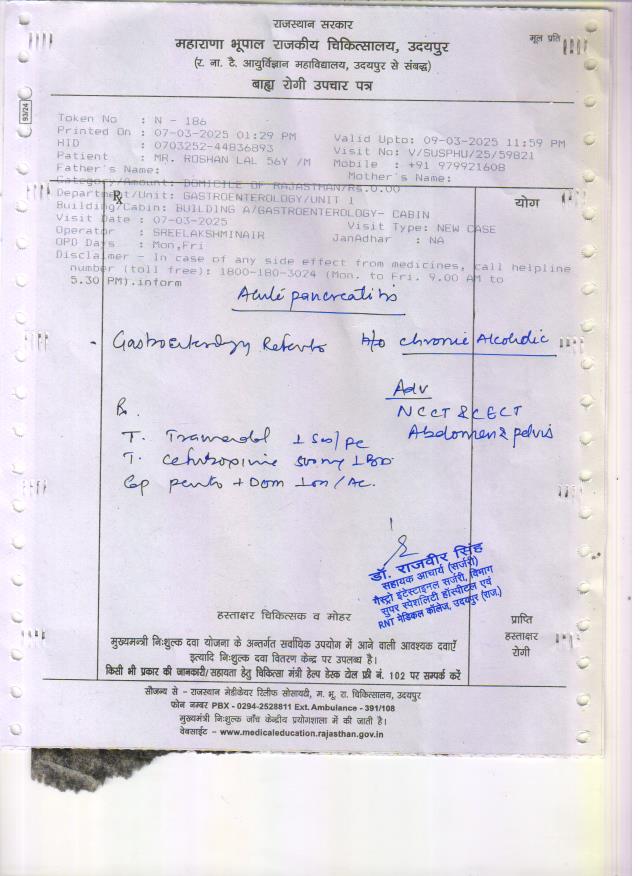 राजस्थान सरकार
महाराणा भूपाल राजकीय चिकित्सालय, उदयपुर
मूल प्रति
(र. ना. टै. आयुर्विज्ञान महाविद्यालय, उदयपुर से संबद्ध)
बाह्य रोगी उपचार पत्र
93/24
Token No : N - 186
Printed On : 07-03-2025 01:29 PM Valid Upto: 09-03-2025 11:59 PM
HID : 0703252-44836893 Visit No: V/SUSPHU/25/59821
Patient : MR. ROSHAN LAL 56Y /M Mobile : +91 979921608
Father's Name: Mother's Name:
Category/Amount: DOMICILE OF RAJASTHAN/Rs.0.00
Department/Unit: GASTROENTEROLOGY/UNIT 1
Rx योग
Building/Cabin: BUILDING A/GASTROENTEROLOGY- CABIN
Visit Date : 07-03-2025 Visit Type: NEW CASE
Operator : SREELAKSHMINAIR JanAdhar : NA
OPD Days : Mon,Fri
Disclaimer - In case of any side effect from medicines, call helpline
number (toll free): 1800-180-3024 (Mon. to Fri. 9.00 AM to
5.30 PM).inform
Acute pancreatitis
- Gastroenterology H/o chronic Alcoholic
Adv
NCCT & CECT
Abdomen & pelvis
Rx.
T.
T.
Cap panto + Dom
डॉ. राजवीर सिंह
सहायक आचार्य (सर्जरी)
गैस्ट्रो इंटेस्टाइनल सर्जरी, विभाग
सुपर स्पेशलिटी हॉस्पीटल एवं
RNT मेडिकल कॉलेज, उदयपुर (राज.)
हस्ताक्षर चिकित्सक व मोहर
प्राप्ति
हस्ताक्षर
रोगी
मुख्यमन्त्री निःशुल्क दवा योजना के अन्तर्गत सर्वाधिक उपयोग में आने वाली आवश्यक दवाएँ
इत्यादि निःशुल्क दवा वितरण केन्द्र पर उपलब्ध है।
किसी भी प्रकार की जानकारी/सहायता हेतु चिकित्सा मंत्री हेल्प डेस्क टोल फ्री नं. 102 पर सम्पर्क करें
सौजन्य से - राजस्थान मेडीकेयर रिलीफ सोसायटी, म. भू. रा. चिकित्सालय, उदयपुर
फोन नम्बर PBX - 0294-2528811 Ext. Ambulance - 391/108
मुख्यमंत्री निःशुल्क जाँच केन्द्रीय प्रयोगशाला में की जाती है।
वेबसाईट - www.medicaleducation.rajasthan.gov.in